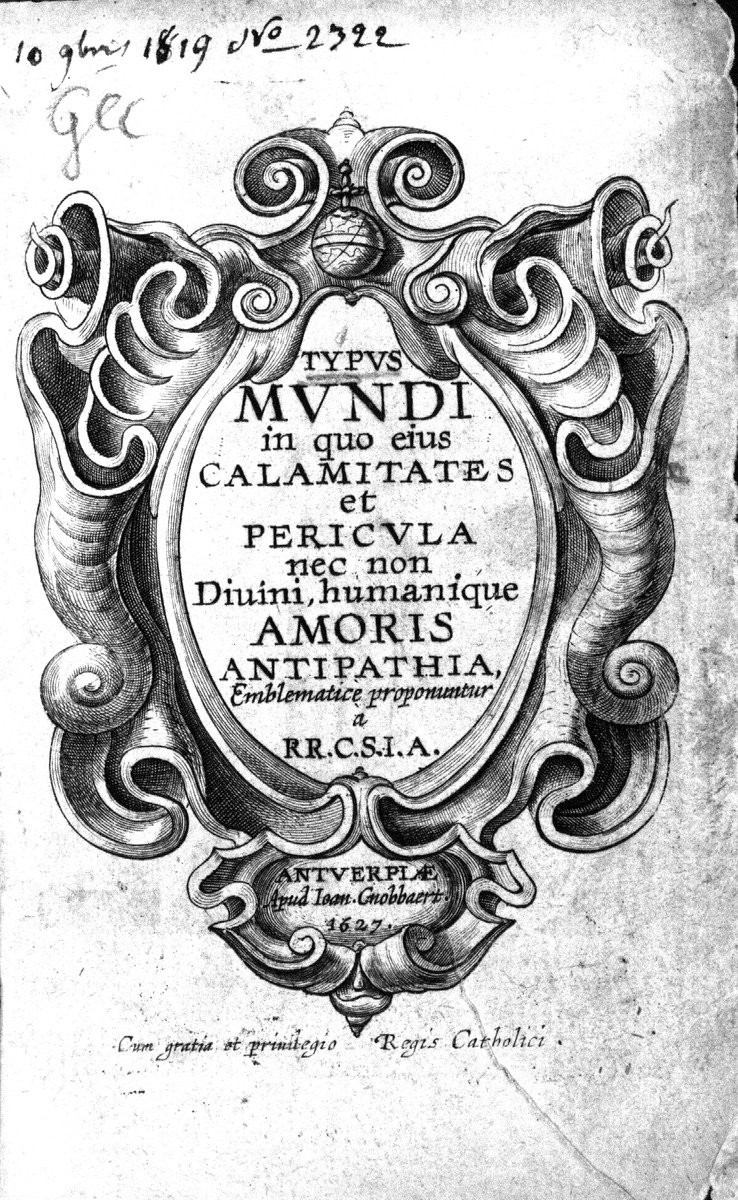 10 9bris 1819 No 2322
Gec
TYPVS
MVNDI
in quo eius
CALAMITATES
et
PERICVLA
nec non
Diuini, humanique
AMORIS
ANTIPATHIA,
Emblematice proponuntur
a
RR.C.S.I.A.
ANTVERPIÆ
Apud Ioan. Gnobbaert.
1627.
Cum gratia et priuilegio Regis Catholici.